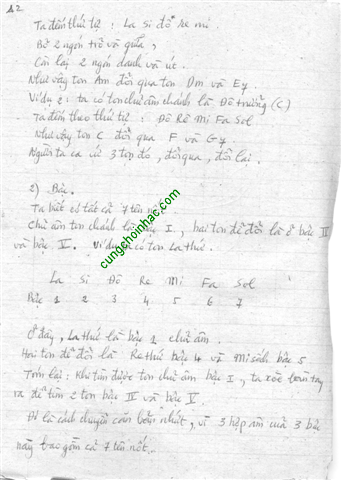 12
Ta đếm thứ tự : La Si Đô Re Mi
Bỏ 2 ngón trỏ và giữa,
Còn lại 2 ngón danh và út.
Như vậy ton Am đổi qua ton Dm và E7
Ví dụ 2 : ta có ton chủ âm chánh là Đô trưởng (C)
Ta đếm theo thứ tự : Đô Rê Mi Fa Sol
Như vậy ton C đổi qua F và G7
Người ta ca cứ 3 ton đó, đổi qua, đổi lại.
2) Bậc.
Ta biết có tất cả 7 tên nốt.
Chủ âm ton chánh là bậc I, hai ton để đổi là ở bậc IV
và bậc V. Ví dụ ta có ton La thứ.
cungchoinhac.com
La Si Đô Re Mi Fa Sol
Bậc 1 2 3 4 5 6 7
Ở đây, La thứ là bậc 1 chủ âm.
Hai ton để đổi là Re thứ bậc 4 và Mi bậc 5
Tóm lại : Khi tìm được ton chủ âm bậc I, ta xòe bàn tay
ra để tìm 2 ton bậc IV và bậc V.
Đó là cách chuyển căn bản nhứt, vì 3 hợp âm của 3 bậc
này bao gồm cả 7 tên nốt...